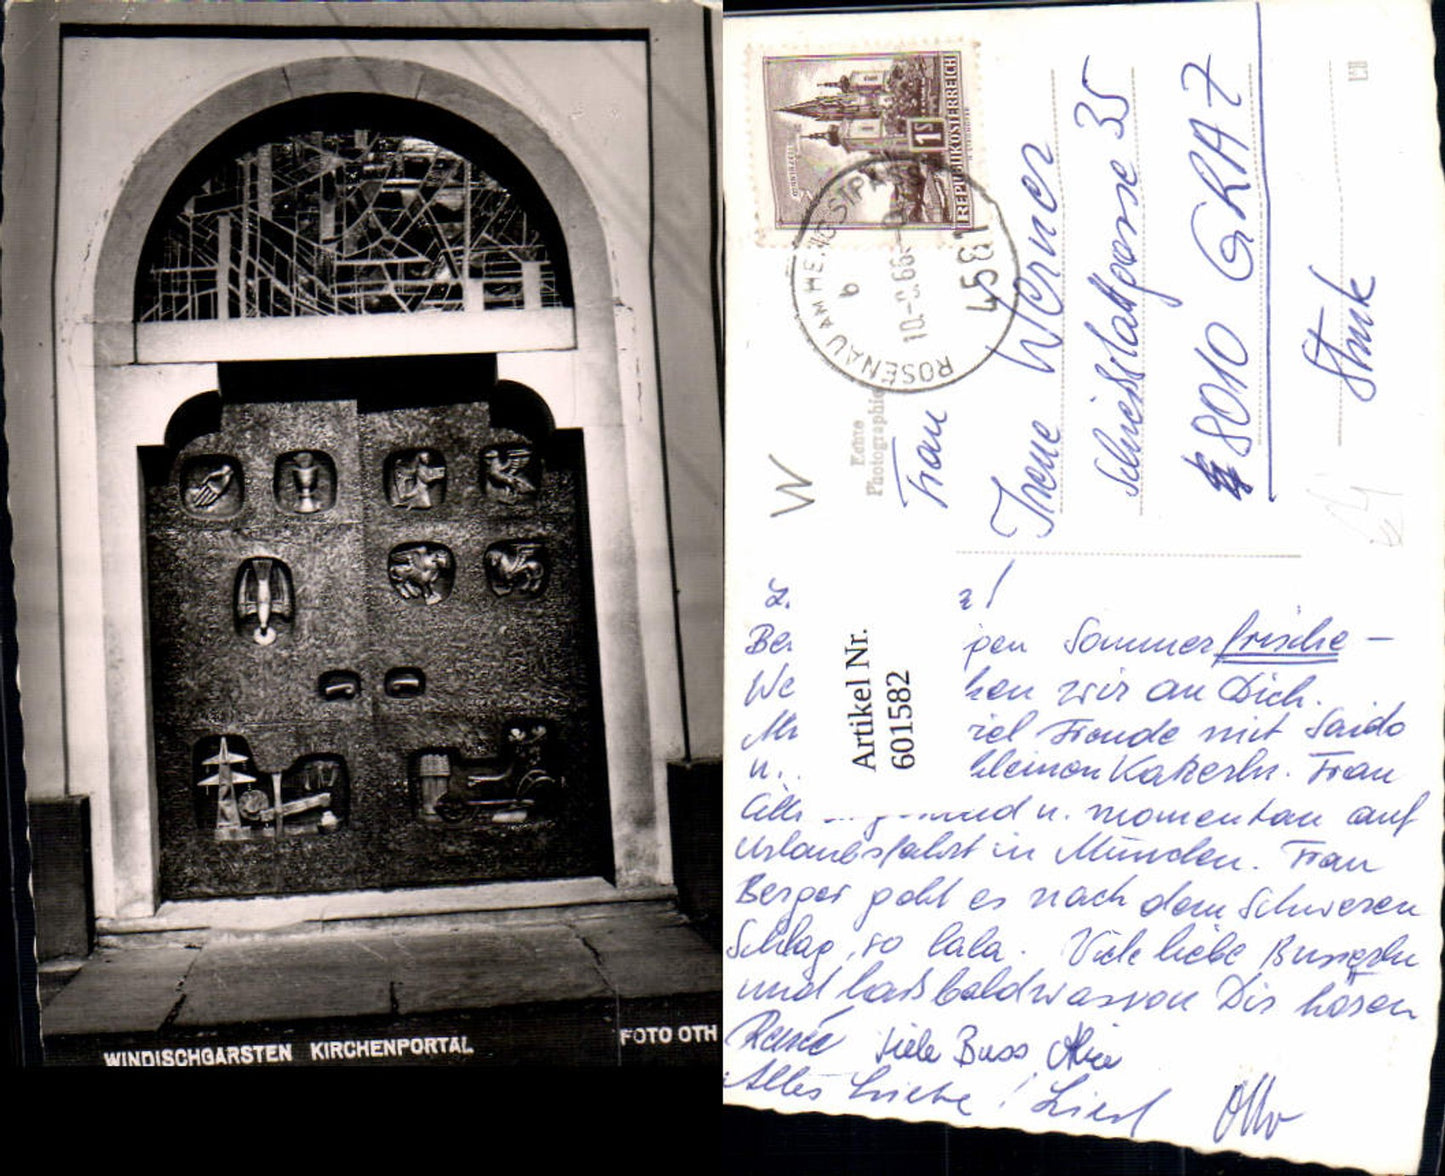 WINDISCHGARSTEN KIRCHENPORTAL
FOTO OTH
REPUBLIK ÖSTERREICH
1S
MARIAZELL
ROSENAU AM HENGSTPASS
b
10.-8.66-
4581
Echte
Photographie
W
Frau
Irene Werner
Schießstattgasse 35
8010 GRAZ
Stmk
Artikel Nr.
6015582
L.
Bei gen Sommerfrische –
We ken wir an Dich.
viel Freude mit Saido
u. kleinen Katzerln. Frau
und u. momentan auf
Urlaubsfahrt in München. Frau
Berger geht es nach dem schweren
Schlag, so lala. Viele liebe Busserln
und laß bald was von Dir hören
Renée Viele Bussi
Alles Liebe! Liesl Otto